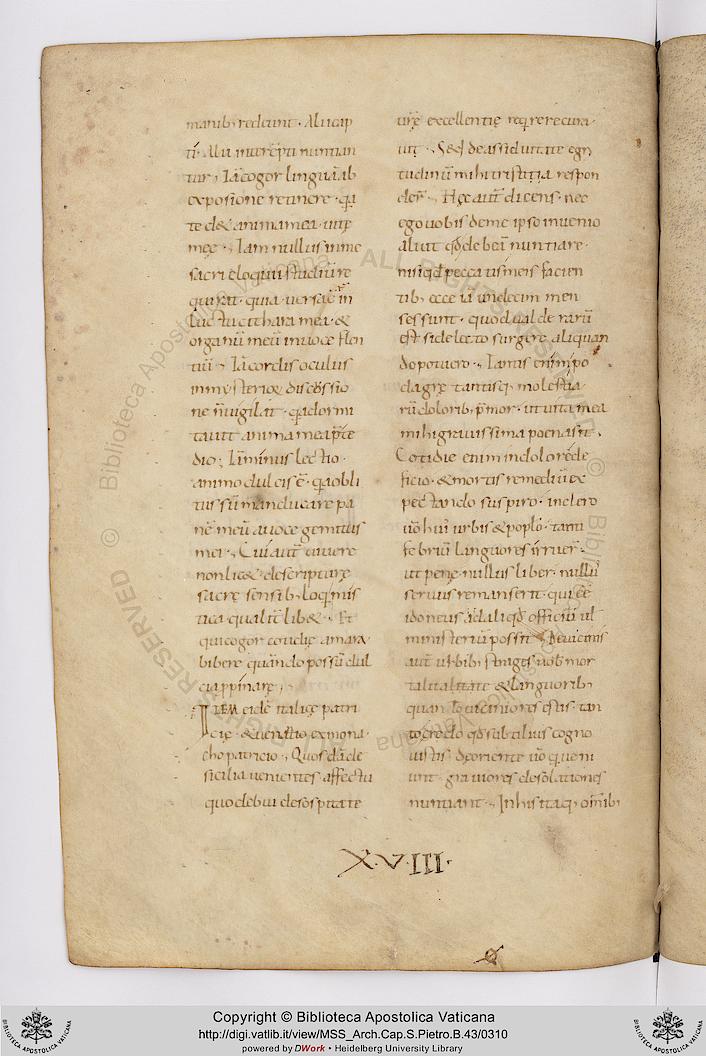 manib; redeunt · Alii cap
ti · Alii interēpti nuntian
tur · Iā cogor linguā ab
exposi̅one retinere · qa̅
tęd& anima mea · uitę
meę · Iam nullus in me
sacri eloquii studiū re
quirat · quia uersa ē̅ in
luctu cithara mea · &
organū meū in uoce flen
tiū · Iā cordis oculus
in mysterioꝝ discussio
ne n̄ uigilat · qa dormi
tauit anima mea p̄ tę
dio · Iā minus lectio ·
animo dulcis ē̅ · qa obli
tus sū manducare pa
nē meū a uoce gemitus
mei · Cui aut̄ uiuere
non lic& · de scripturę
sacrę sensib; loqui mis
tica qualit̄ lib& · Et
qui cogor cotidię amara
bibere quando possū dul
cia ppinarę ·
ITEM eidē italicę patri
cię · & uenantio ex mona
cho patricio · Quos dā de
sicilia uenientes affectu
quo debui de sospitate
urę̄ excellentię reqrere cura
ui · S& de assiduitate egri
tudinū mihi tristitia respon
der̄ · Hęc aut̄ dicens · nec
ego uobis de me ipso inuenio
aliut qd̄ debeā nuntiare ·
nisi qd̄ peccatis meis facien
tib; ecce iā undecim men
ses sunt · quod ualde rarū
est si de lecto surgere aliquan
do potuero · Tantis enim po
dagrę tantisq; molestia
rū dolorib; p̄mor · ut uita mea
mihi grauissima poena sit ·
Cotidie enim in dolore de
ficio · & mortis remediū ex
pectando suspiro · In clero
u̅o hui' urbis & poplo · tanti
febriū languores irruer̄ ·
ut penę nullus liber · nullus
seruus remanserit · qui ēē
idoneus ad aliqd̄ officiū ul̄
ministeriū possit · De uicinis
aut̄ urbib; strages nob̄ mor
talitatatę & languorib;
quan to uiciniores estis · tan
to credo qd̄ subtilius cogno
uistis · De oriente u̅o qui ueni
unt · grauiores desolationes
nuntiant · In his itaq; omib;
XVIII·
© Biblioteca Apostolica Vaticana ALL RIGHTS RESERVED
Copyright © Biblioteca Apostolica Vaticana
http://digi.vatlib.it/view/MSS_Arch.Cap.S.Pietro.B.43/0310
powered by DWork • Heidelberg University Library
BIBLIOTECA APOSTOLICA VATICANA
BIBLIOTECA APOSTOLICA VATICANA